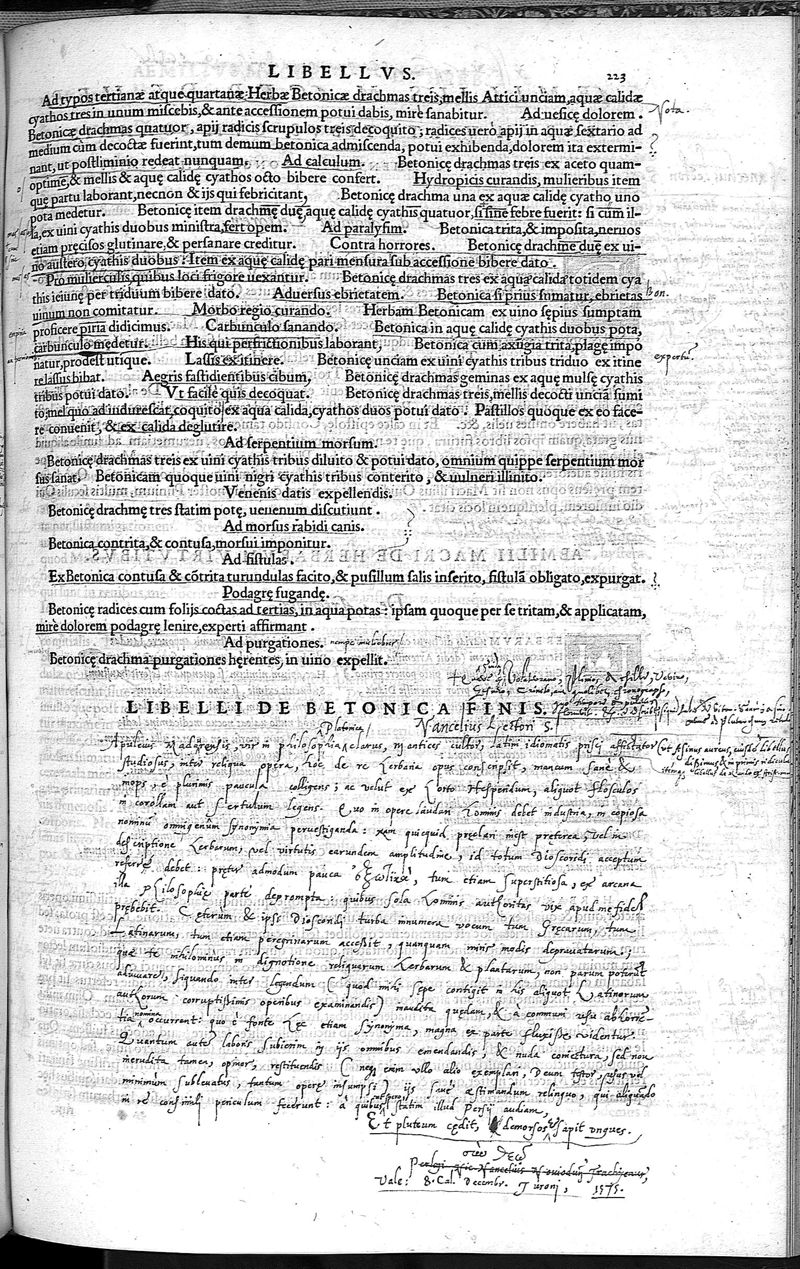 LIBELLVS. 223
Ad typos tertianæ atque quartanæ Herbæ Betonicæ drachmas treis, mellis Attici unciam, aquæ calidæ
cyathos tres in unum miscebis, & ante accessionem potui dabis, mirè sanabitur. Ad uesicę dolorem.
Nota.
Betonicæ drachmas quatuor, apij radicis scrupulos treis decoquito; radices uerò apij in aquæ sextario ad
medium cùm decoctæ fuerint, tum demum betonica admiscenda, potui exhibenda, dolorem ita extermi-
nant, ut postliminio redeat nunquam. Ad calculum. Betonicę drachmas treis ex aceto quam-
optime, & mellis & aquę calidę cyathos octo bibere confert. Hydropicis curandis, mulieribus item
quę partu laborant, necnon & ijs qui febricitant, Betonicę drachma una ex aquæ calidę cyatho uno
pota medetur. Betonicę item drachmę duę, aquę calidę cyathis quatuor, si sine febre fuerit: si cùm il-
la, ex uini cyathis duobus ministra, fert opem. Ad paralysim. Betonica trita, & imposita, neruos
etiam pręcisos glutinare, & persanare creditur. Contra horrores. Betonicę drachmę duę ex ui-
no austero, cyathis duobus: Item ex aquę calidę pari mensura sub accessione bibere dato.
Pro mulierculis quibus loci frigore uexantur. Betonicę drachmas tres ex aqua calida totidem cya
this ieiunę per triduum bibere dato. Aduersus ebrietatem. Betonica si prius sumatur, ebrietas
Bon.
uinum non comitatur. Morbo regio curando. Herbam Betonicam ex uino sępius sumptam
proficere piria didicimus. Carbunculo sanando. Betonica in aquę calidę cyathis duobus pota,
carbunculo medetur. His qui perfrictionibus laborant, Betonica cùm axūgia trita, plagę impo
natur, prodest utique. Lassis ex itinere. Betonicę unciam ex uini cyathis tribus triduo ex itine
expertū.
re lassus bibat. Aegris fastidientibus cibum, Betonicę drachmas geminas ex aquę mulsę cyathis
tribus potui dato. Vt facile quis decoquat. Betonicę drachmas treis, mellis decocti unciā sumi
to, mel quo ad indurescat, coquito ex aqua calida, cyathos duos potui dato. Pastillos quoque ex eo face-
re conuenit, & ex calida deglutire.
Ad serpentium morsum.
Betonicę drachmas treis ex uini cyathis tribus diluito & potui dato, omnium quippe serpentium mor
sus sanat. Betonicam quoque uini nigri cyathis tribus conterito, & uulneri illinito.
Venenis datis expellendis.
Betonicę drachmę tres statim potę, uenenum discutiunt.
Ad morsus rabidi canis.
Betonica contrita, & contusa, morsui imponitur.
Ad fistulas.
Ex Betonica contusa & cōtrita turundulas facito, & pusillum salis inserito, fistulā obligato, expurgat.
Podagrę fugandę.
Betonicę radices cum folijs coctas ad tertias, in aqua potas: ipsam quoque per se tritam, & applicatam,
mirè dolorem podagrę lenire, experti affirmant.
Ad purgationes.
Betonicę drachma purgationes hęrentes, in uino expellit.
LIBELLI DE BETONICA FINIS.
Nancelius Lectori S.
Platonica
Apuleius Madaurensis, vir in philosophia clarus, mantices cultor, latini idiomatis prisci affectator
studiosus, inter reliqua opera, hoc de re herbaria opus conscripsit, mancum sanè &
mops, è plurimis paucula colligens; ac velut ex horto Hesperidum, aliquot flosculos
in corollam aut sertulum legens. Quo in opere laudari hominis debet industria, in copiosa
nominū omnigenūm synonymia pervestiganda: nam quicquid preclari inest preterea, vel in
descriptione herbarum, vel virtutis earundem amplitudine, id totum Dioscoridi acceptum
referre debet: preter admodum pauca, tum etiam superstitiosa, ex arcana
illa philosophię parte deprompta: quibus sola hominis authoritas vix apud me fidem
prębebit. Ceterum & ipsi Dioscoridi turba innumera vocum tum Grecarum, tum
Latinarum, tum etiam peregrinarum accessit, quanquam miris modis depravatarum:
quę te nihilominus in dignotione reliquarum herbarum & plantarum, non parum poterūt
adiuvare, siquando inter legendum (quod mihi sepe contigit in iis aliquot Latinorum
authorum corruptissimis operibus examinandis) inaudita quędam, & à communi usu abhorrē-
tia nomina occurrent: quo è fonte hęc etiam synonyma, magna ex parte fluxisse videntur.
Quantum autē laboris subierim in iis omnibus emendandis, & nuda coniectura, sed non
inerudita tamen, opinor, restituendis (neque enim ullo alio exemplari, Deum testor,
minimum sublevatus, tantum operę insumpsi) iis sanè æstimandum relinquo, qui aliquando
in re consimili periculum fecerunt: à quibus statim illud Persij audiam,
Et pluteum cędit, & demorsos sapit ungues.
σὺν θεῷ
Perlegi Nic. Nancelius Noviodun. Trachyenus,
Vale: 8. Cal. Decembr. Turoni, 1575.